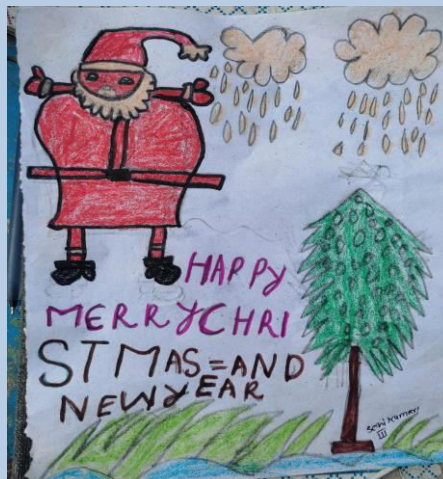 HAPPY
MERRYCHRI
STMAS=AND
NEWYEAR
III